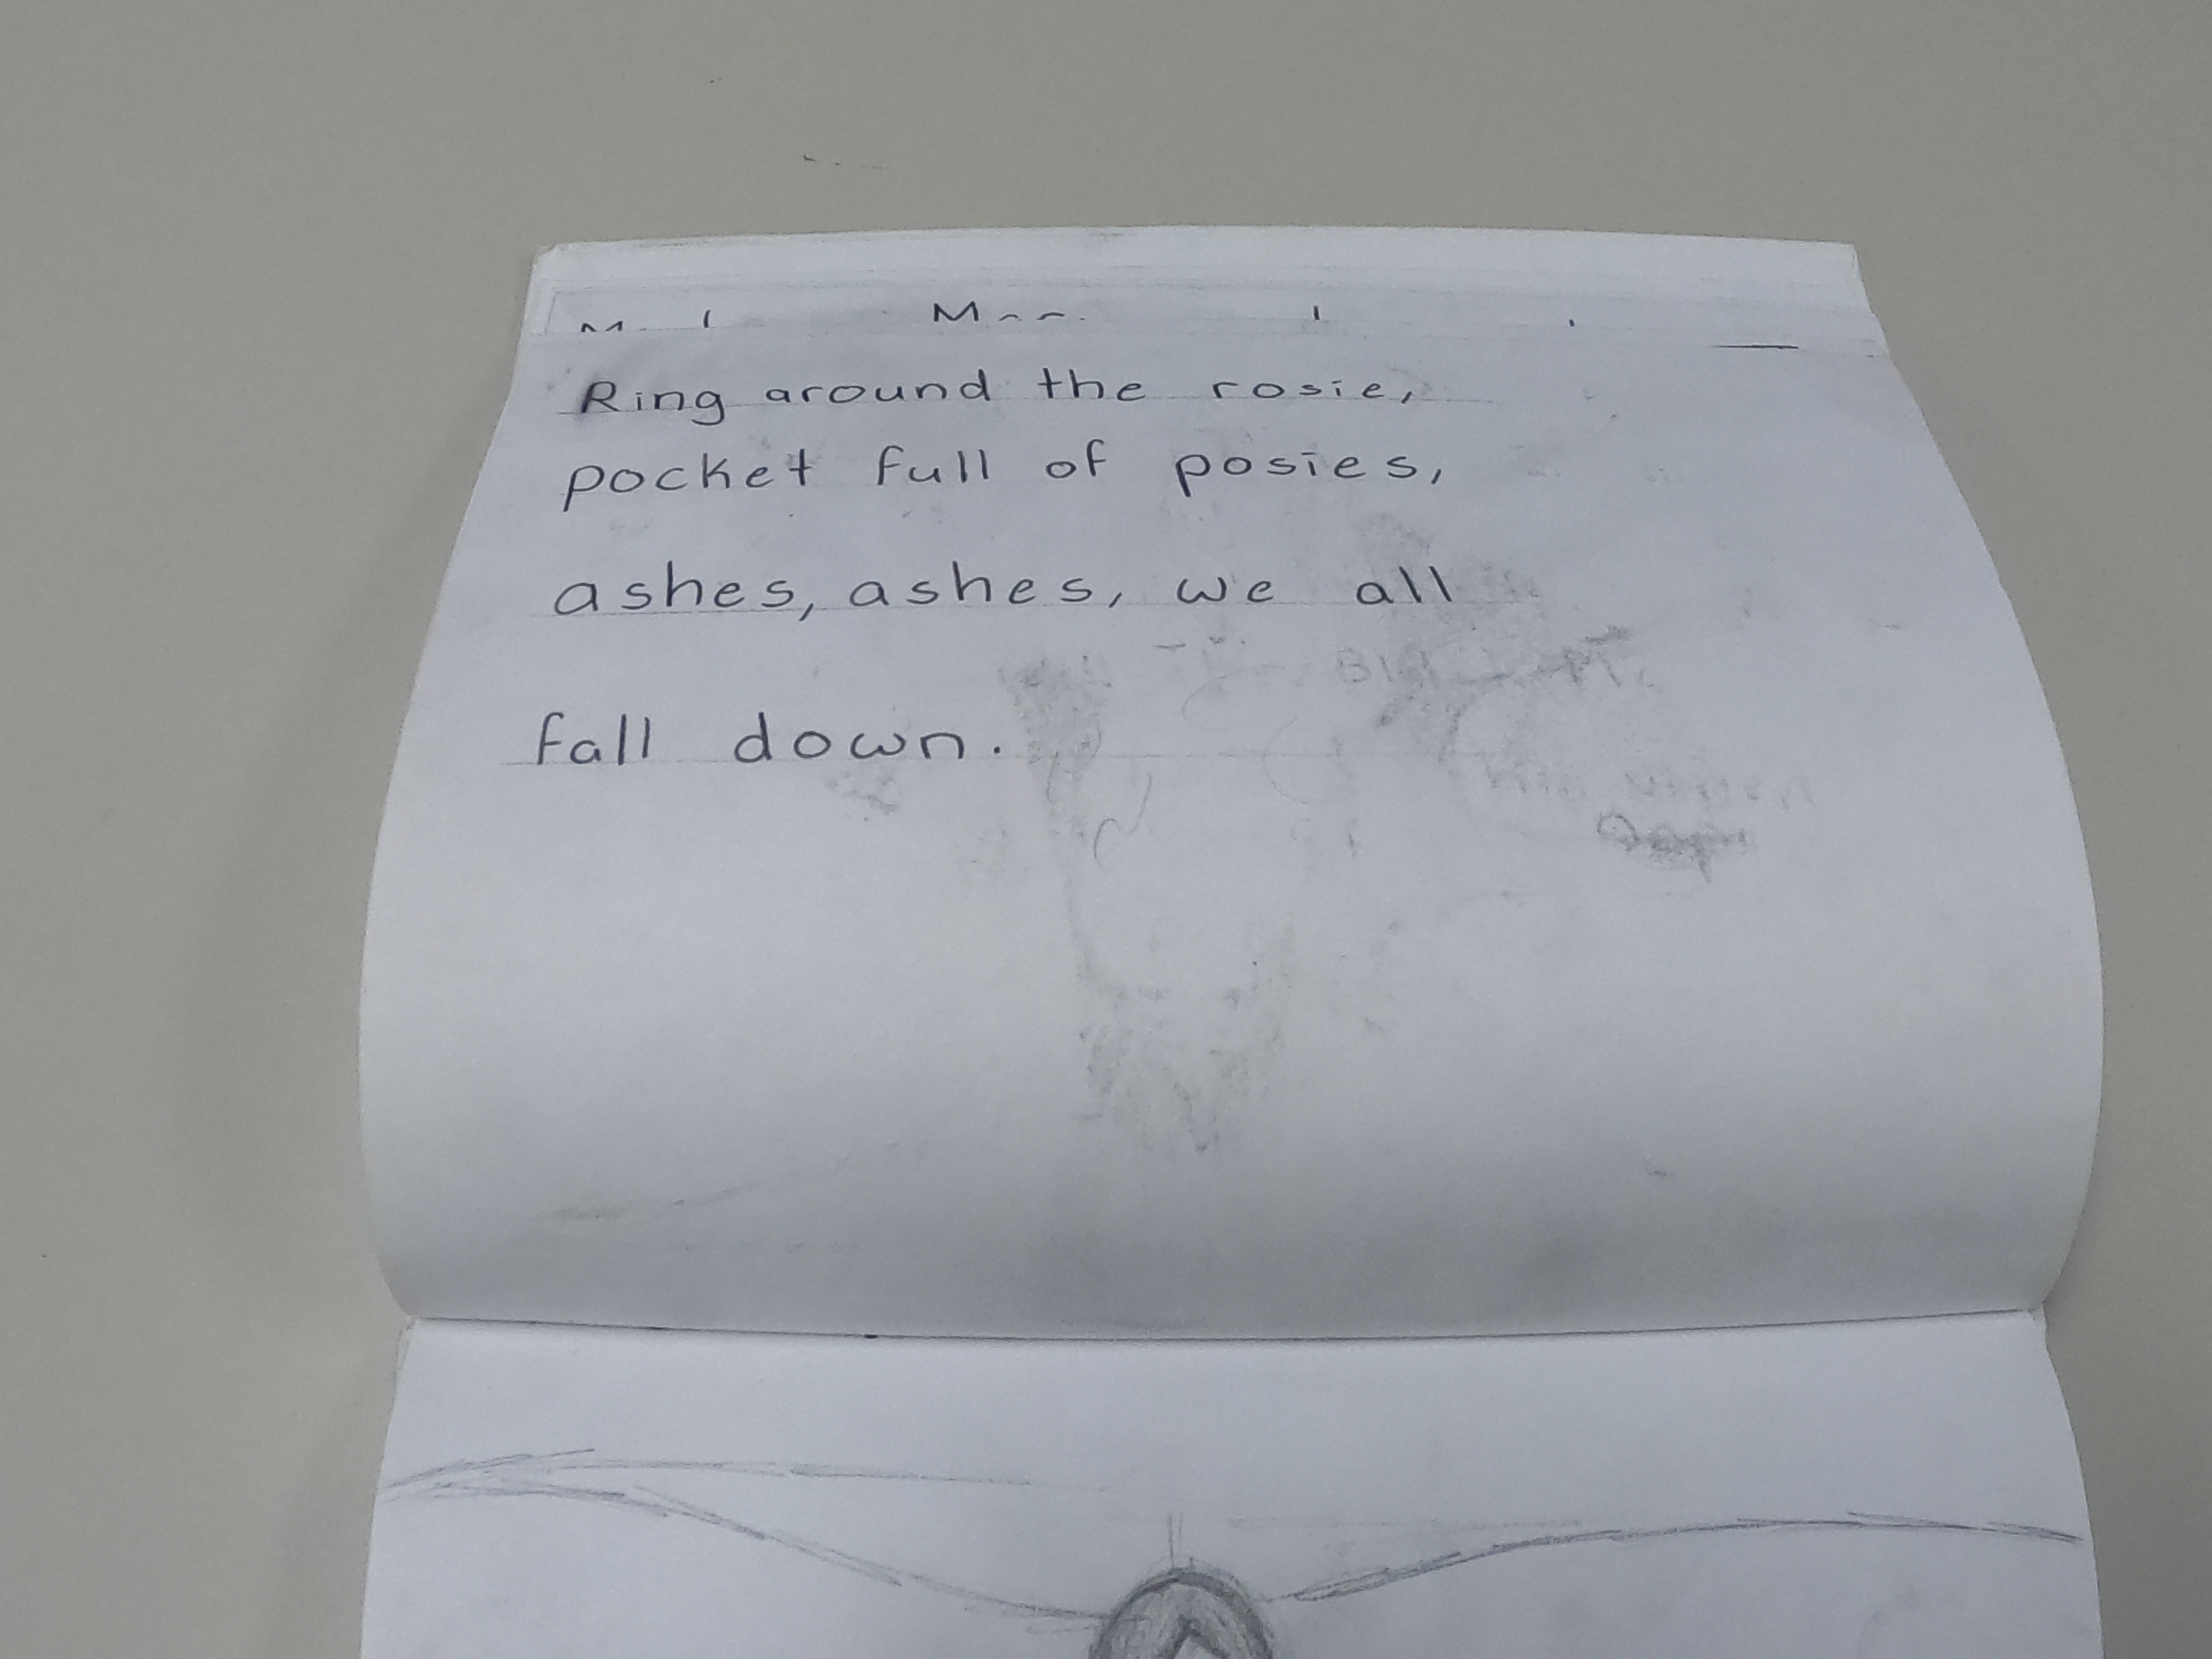 Ring around the rosie,
pocket full of posies,
ashes, ashes, we all
fall down.